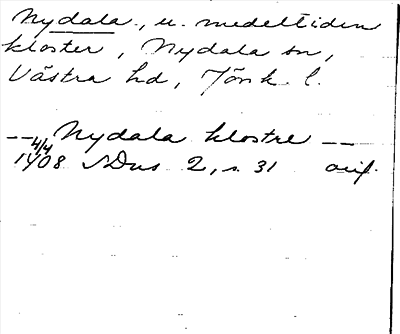 Nydala, u. medeltiden
kloster, Nydala sn,
Västra hd, Jönk. l.
-- Nydala klostre --
4/4
1408 SDns 2, s. 31 orig.